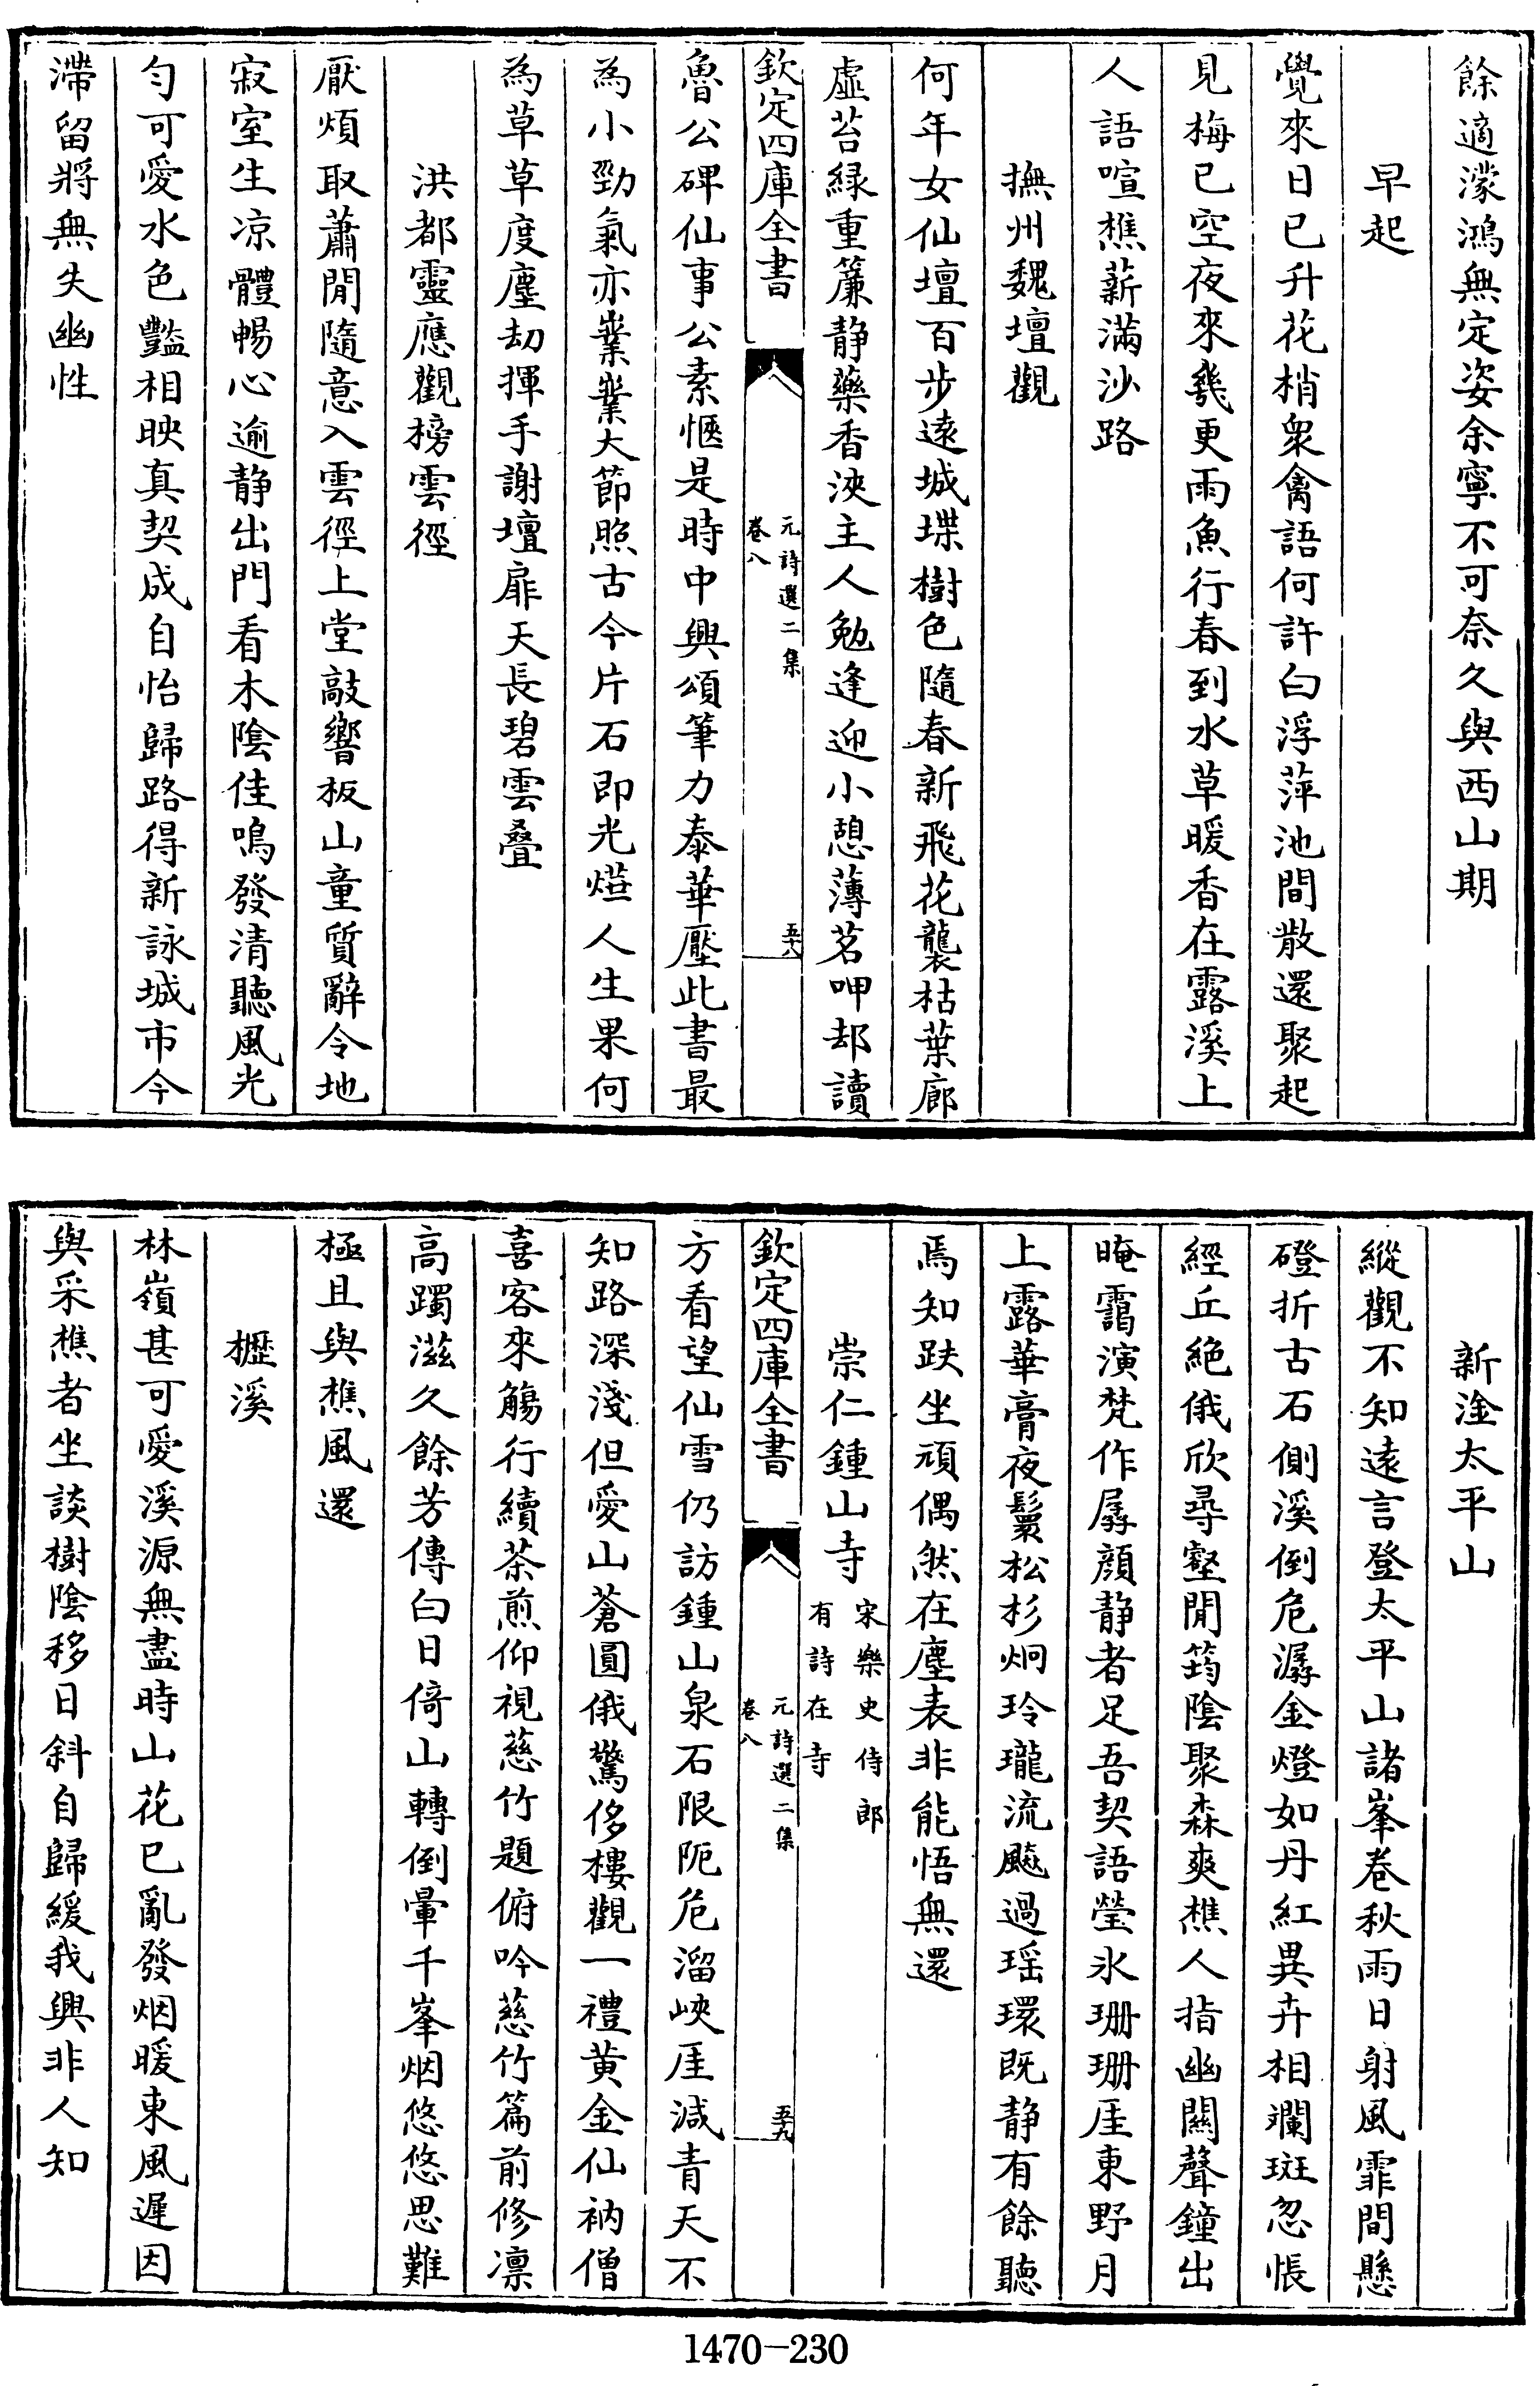 餘適濛鴻無定姿余寧不可奈久與西山期
早起
覺來日已升花梢衆禽語何許白浮萍池間散還聚起
見梅已空夜來幾更雨魚行春到水草暖香在露溪上
人語喧樵薪滿沙路
撫州魏壇觀
何年女仙壇百步遠城堞樹色隨春新飛花襲枯葉廊
虛苔緑重簾静藥香浹主人勉逢迎小憩薄茗呷却讀
欽定四庫全書
元詩選二集
卷八
五十八
魯公碑仙事公素愜是時中興頌筆力泰華壓此書最
為小勁氣亦嶪嶪大節照古今片石即光爁人生果何
為草草度塵刧揮手謝壇扉天長碧雲叠
洪都靈應觀榜雲徑
厭煩取蕭閒隨意入雲徑上堂敲響板山童質辭令地
寂室生凉體暢心逾静出門看木陰佳鳴發清聽風光
勻可愛水色豔相映真契成自怡歸路得新詠城市今
滯留將無失幽性
新淦太平山
縱觀不知遠言登太平山諸峯卷秋雨日射風霏間懸
磴折古石側溪倒危潺金燈如丹紅異卉相斕斑忽悵
經丘絶俄欣尋壑閒筠陰聚森爽樵人指幽關聲鐘出
晻靄演梵作孱顔静者足吾契語瑩氷珊珊厓東野月
上露華膏夜鬟松杉炯玲瓏流飈過瑶環既静有餘聽
焉知趺坐頑偶然在塵表非能悟無還
崇仁鍾山寺
宋樂史侍郎
有詩在寺
欽定四庫全書
元詩選二集
卷八
五十九
方看望仙雪仍訪鍾山泉石限阨危溜峽厓減青天不
知路深淺但愛山蒼圓俄驚侈樓觀一禮黄金仙衲僧
喜客來觴行續茶煎仰視慈竹題俯吟慈竹篇前修凛
高躅滋久餘芳傳白日倚山轉倒暈千峯烟悠悠思難
極且與樵風還
櫪溪
林嶺甚可愛溪源無盡時山花已亂發烟暖東風遲因
與采樵者坐談樹陰移日斜自歸緩我興非人知
1470-230